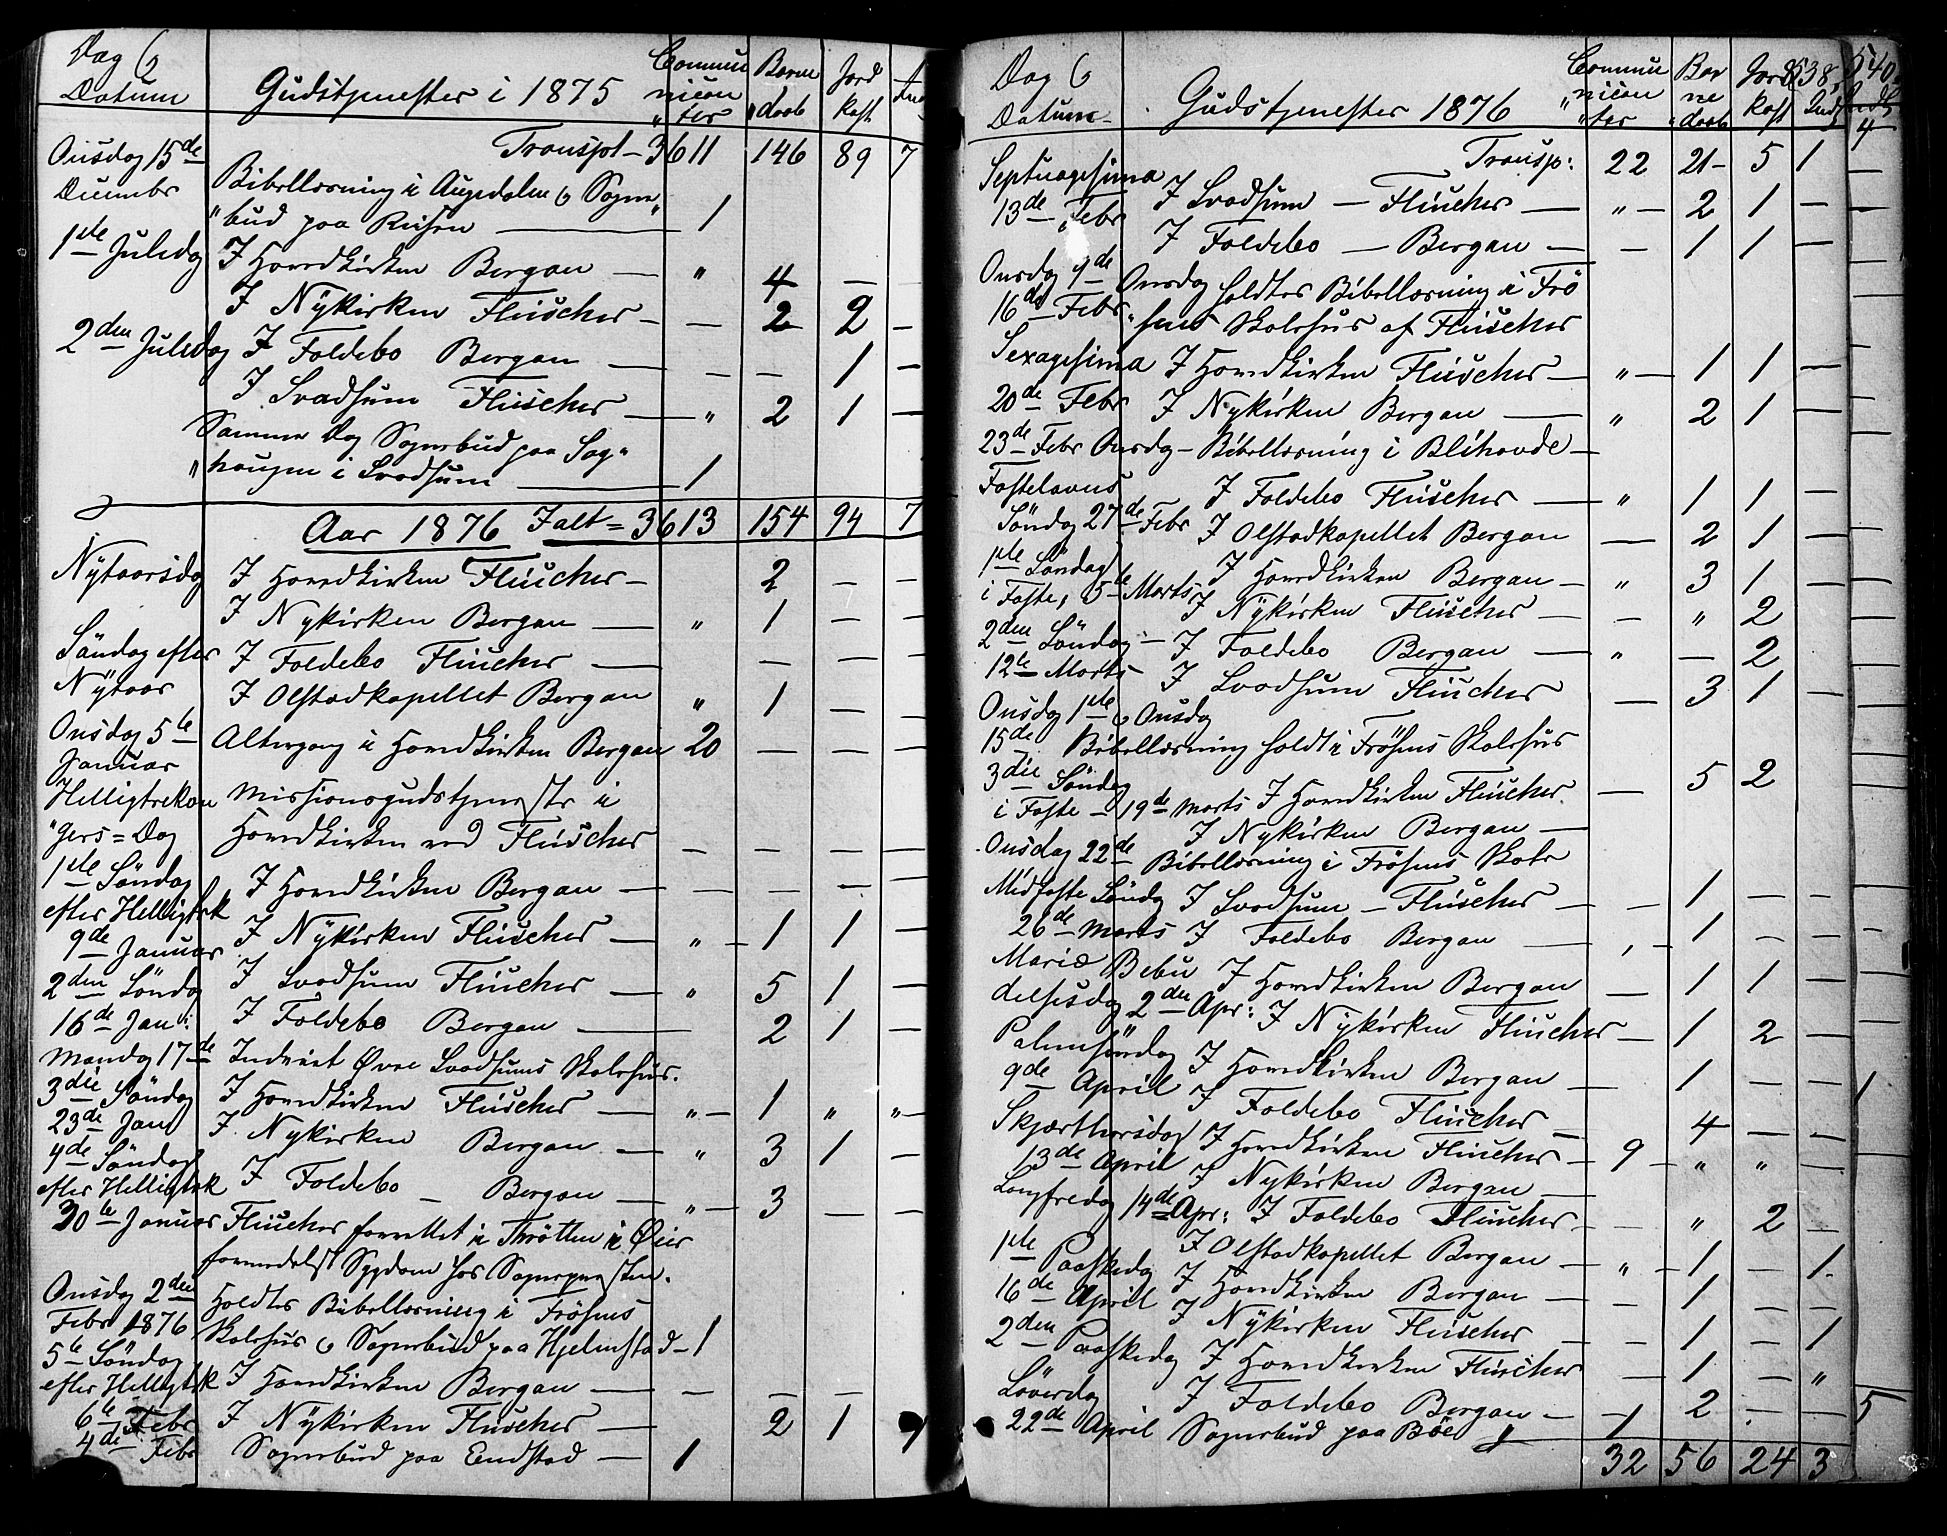 Dag &
Datum
Gudstjenester i 1875
Commu
nican
"ter
Barne
"daab
Jord
kast
Onsdag 15de
Decembr
Transpt - 3611 146 89 7
Bibellæsning i Augedalen & Sogne"
"bud paa Riisen — 1
1ste Juledag I Hovedkirken Bergan — " 4 — —
I Nykirken Fleischer — — 2 2 —
2den Juledag I Foldebo Bergan — — — 1 —
I Svadsum Fleischer — " 2 1 —
Samme Dag Sognebud paa Sag"
"haugen i Svadsum — 1
Aar 1876 Ialt = 3613 154 94 7
Nytaarsdag I Hovedkirken Fleischer — 2 — —
I Nykirken Bergan — " 1 — —
Söndag efter I Foldebo Fleischer — — — —
Nytaar I Olstadkapellet Bergan " 1 — —
Onsdag 5te
Januar
Altergang i Hovedkirken Bergan 20 — — —
Helligtrekon Missionsgudstjeneste i
"gers=Dag Hovedkirken ved Fleischer — — — —
1ste Söndag
efter Helligtrk
I Hovedkirken Bergan — — — — —
9de Januar I Nykirken Fleischer — " — 1 1 —
2den Söndag I Svadsum Fleischer — " 5 1 —
16de Jan: I Foldebo Bergan — 2 1 —
Mandag 17de Indviet Øvre Svadsums Skolehus.
3die Söndag I Hovedkirken Fleischer — " — 1 " " —
23de Jan I Nykirken Bergan — " 3 1 —
4de Söndag
efter Helligtrk I Foldebo — Bergan — " — 3 — —
30te Januar Fleischer forrettet i Thrötten i Øier
formedelst Sygdom hos Sognepresten.
Onsdag 2den
Febr 1876
Holdtes Bibellæsning i Fröhns
Skolehus & Sognebud paa Hjelmstad — 1
5te Söndag
efter Helligtrk I Hovedkirken Bergan — — — —
6te Febr I Nykirken Fleischer — 2 1
4de Febr Sognebud paa Endstad — 1
Dag &
Datum
Gudstjenester 1876
Commu
"nican
"ter
Bar
ne
"daab
Jord
kast
538
540
4
Transp: 22 21 — 5 1
Septuagesima
13de Febr I Svadsum — Fleischer — " — 2 1 —
I Foldebo — Bergan — — 1 1 —
Onsdag 9de
16de Febr
Onsdag holdtes Bibellæsning i Frö
"hns Skolehus af Fleischer
Sexagesima I Hovedkirken Fleischer — " — 1 1 —
20de Febr I Nykirken Bergan — " 2 1 —
23de Febr Onsdg — Bibellæsning i Blihovde —
Fastelavns I Foldebo Fleischer — " 1 1 —
Söndag 27de Febr I Olstadkapellet Bergan — 2 1 —
1ste Söndag I Hovedkirken Bergan — " 3 1 —
i Faste, 5te Marts I Nykirken Fleischer — — " 2
2den Söndag — I Foldebo Bergan — " — 2
12te Marts I Svadsum Fleischer — 3 1 —
Onsdag 1ste & Onsdag
15de Bibellæsning holdt i Fröhns Skolehus
3die Söndag
i Faste — 19de Marts I Hovedkirken Fleischer — 5 2
I Nykirken Bergan —
Onsdag 22de Bibellæsning i Fröhns Skole
Midfaste Söndg I Svadsum — Fleischer — — 1 — —
26de Marts I Foldebo Bergan — — 1 — —
Mariæ Bebu I Hovedkirken Bergan — 1 1 —
delsesdag 2den Apr: I Nykirken Fleischer — 1 2 —
Palmesöndag I Hovedkirken Bergan — 1 — —
9de April I Foldebo Fleischer — 4 — —
1
Skjærthorsdag I Hovedkirken Fleischer — 9 — " " —
13de April I Nykirken Bergan —
Langfredag 14de Apr: I Foldebo Fleischer — — " 2 —
1ste Paaskedag I Olstadkapellet Bergan — " — 1 — 1
16de April I Hovedkirken Bergan — — 1 — —
I Nykirken Fleischer — — 1 — 1
2den Paaskedag I Hovedkirken Fleischer — 1 — "
I Foldebo Bergan — — 2 — —
5
Löverdag
22de April Sognebud paa Böe 1
32 56 24 3